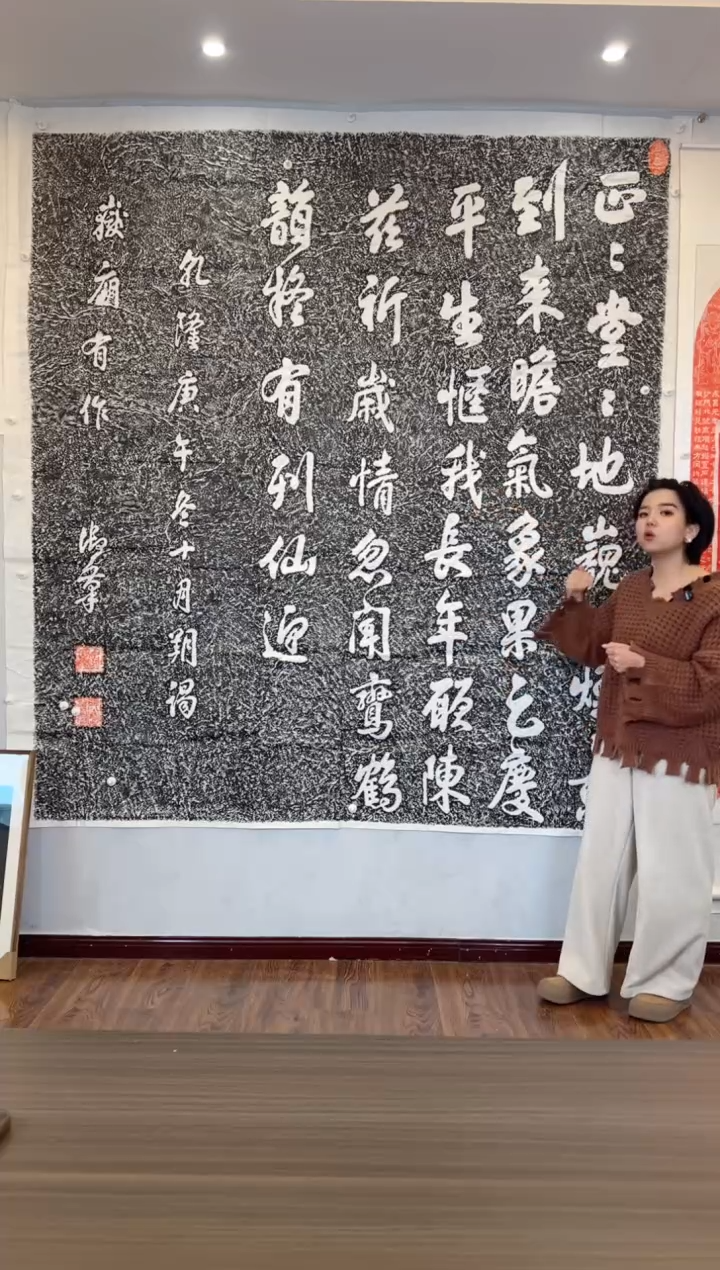 正〻堂〻地巍
到来瞻氣象果足慶
平生愜我長年願陳
茲祈歲情忽聞鸞鶴
韻疑有列仙迎
乾隆庚午冬十月朔謁
嶽廟有作 御筆